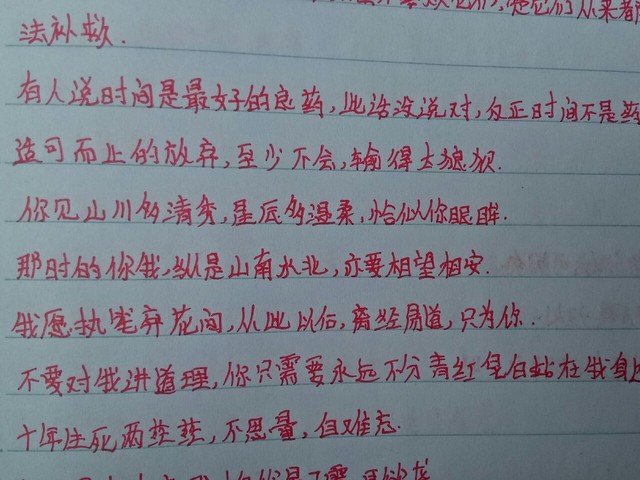 是它们从来都
法补救.
有人说时间是最好的良药,此话没说对,反正时间不是药
适可而止的放弃,至少不会,输得太狼狈.
你见山川多清秀,星辰多温柔,恰似你眼眸.
那时的你我,纵是山南水北,亦要相望相安.
我愿执笔弃花间,从此以后,离经易道,只为你.
不要对我讲道理,你只需要永远不分青红皂白站在我身边
十年生死两茫茫,不思量,自难忘.